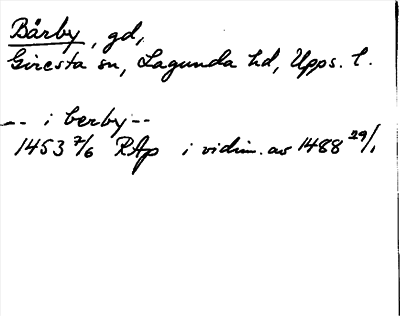 Bärby, gd,
Giresta sn, Lagunda hd, Upps. l.
-- i berby --
1453 7/6 RAp i vidim. av 1488 29/1